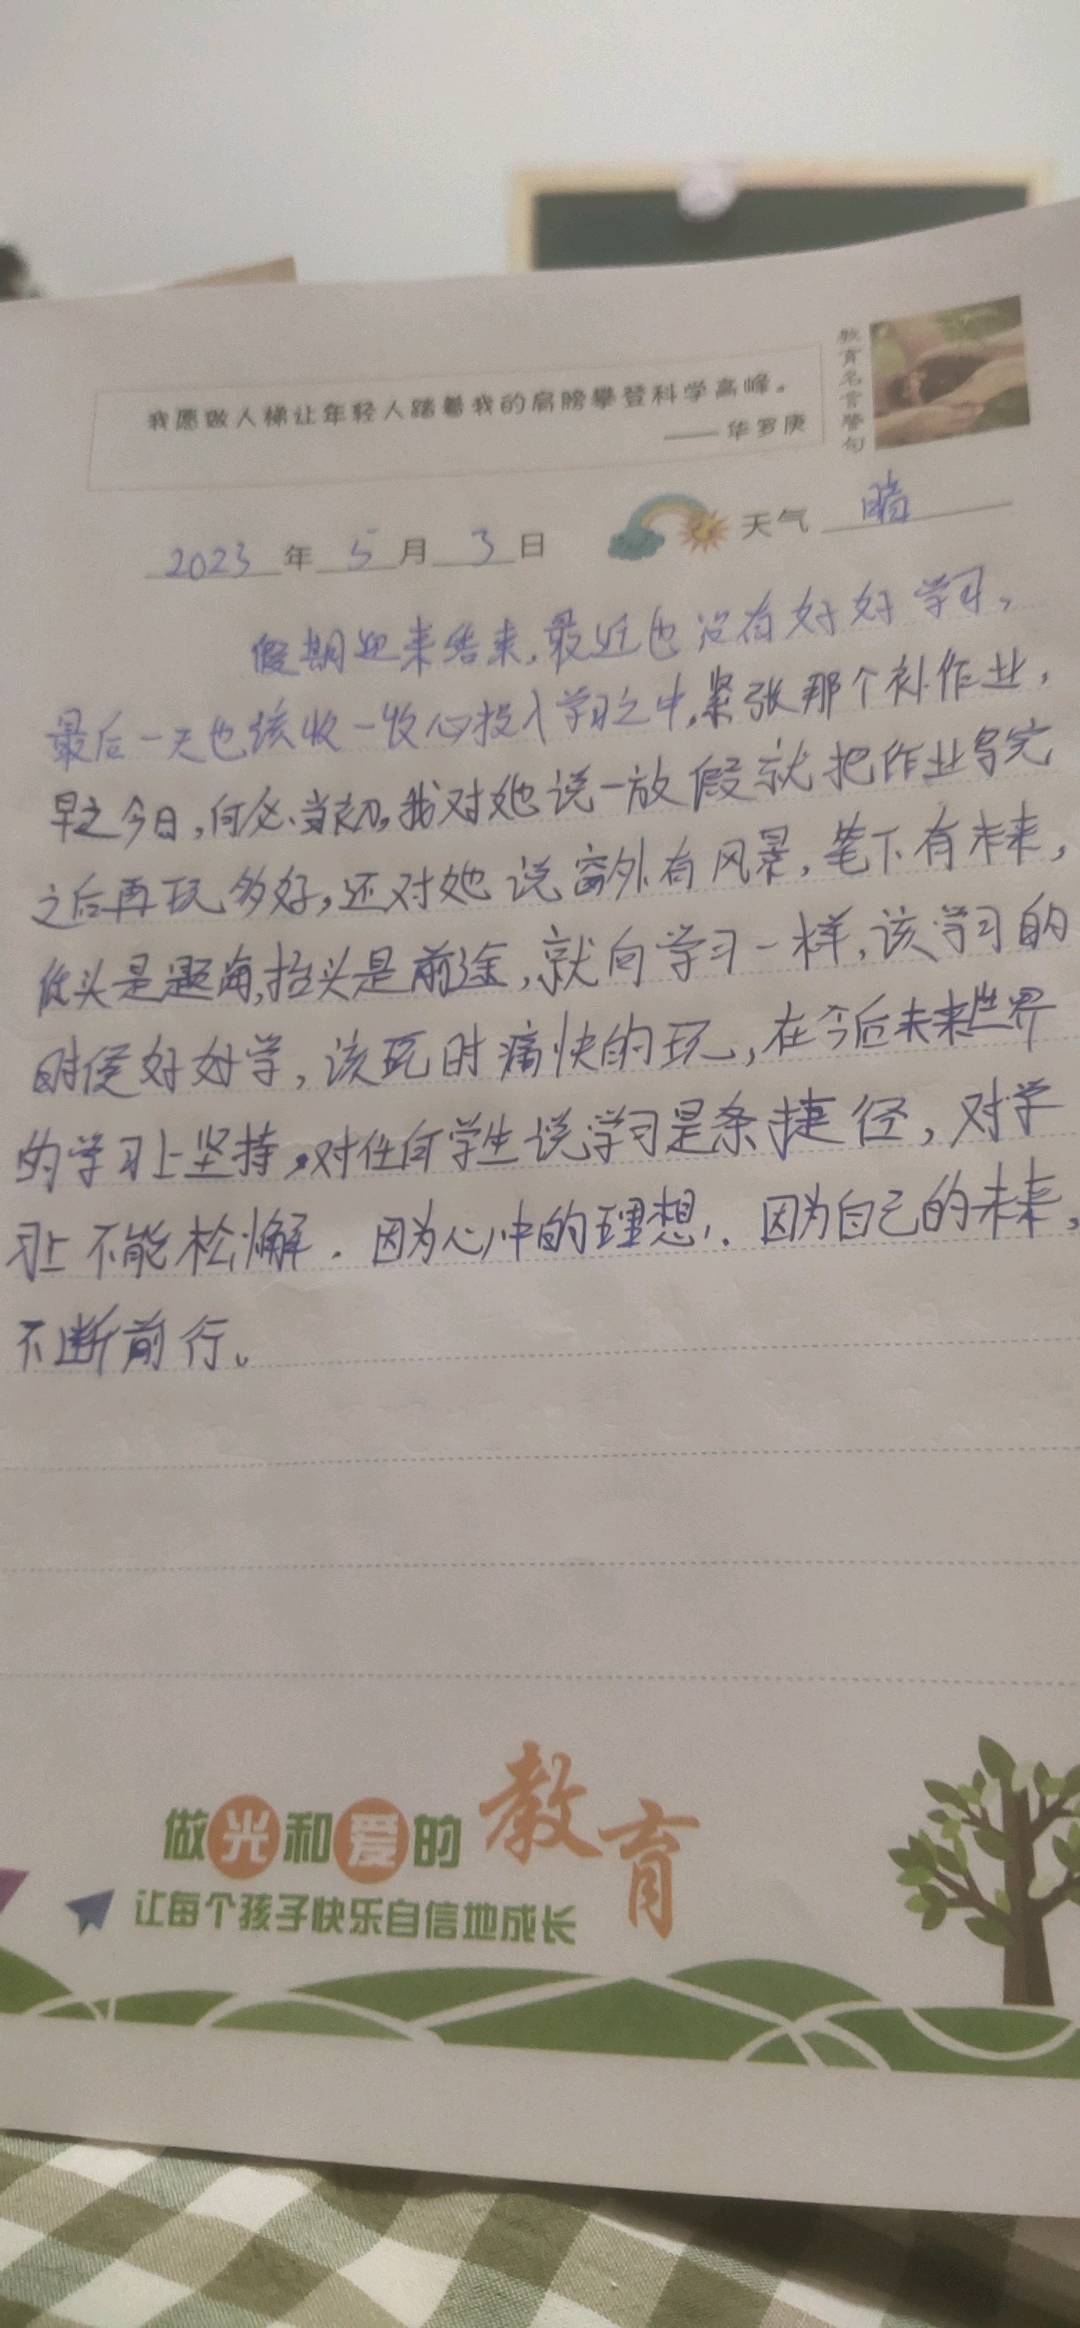 我愿做人梯让年轻人踏着我的肩膀攀登科学高峰。
——华罗庚
教育名言警句
2023年5月3日 天气 晴
假期迎来结束,最近也没有好好学习,
最后一天也该收一收心投入学习之中,紧张那个补作业,
早之今日,何必当初,我对她说一放假就把作业写完
之后再玩多好,还对她说窗外有风景,笔下有未来,
低头是题海,抬头是前途,就向学习一样,该学习的
时候好好学,该玩时痛快的玩,在今后未来世界
的学习上坚持,对任何学生说学习是条捷径,对学
习上不能松懈.因为心中的理想,因为自己的未来,
不断前行。
做光和爱的教育
让每个孩子快乐自信地成长